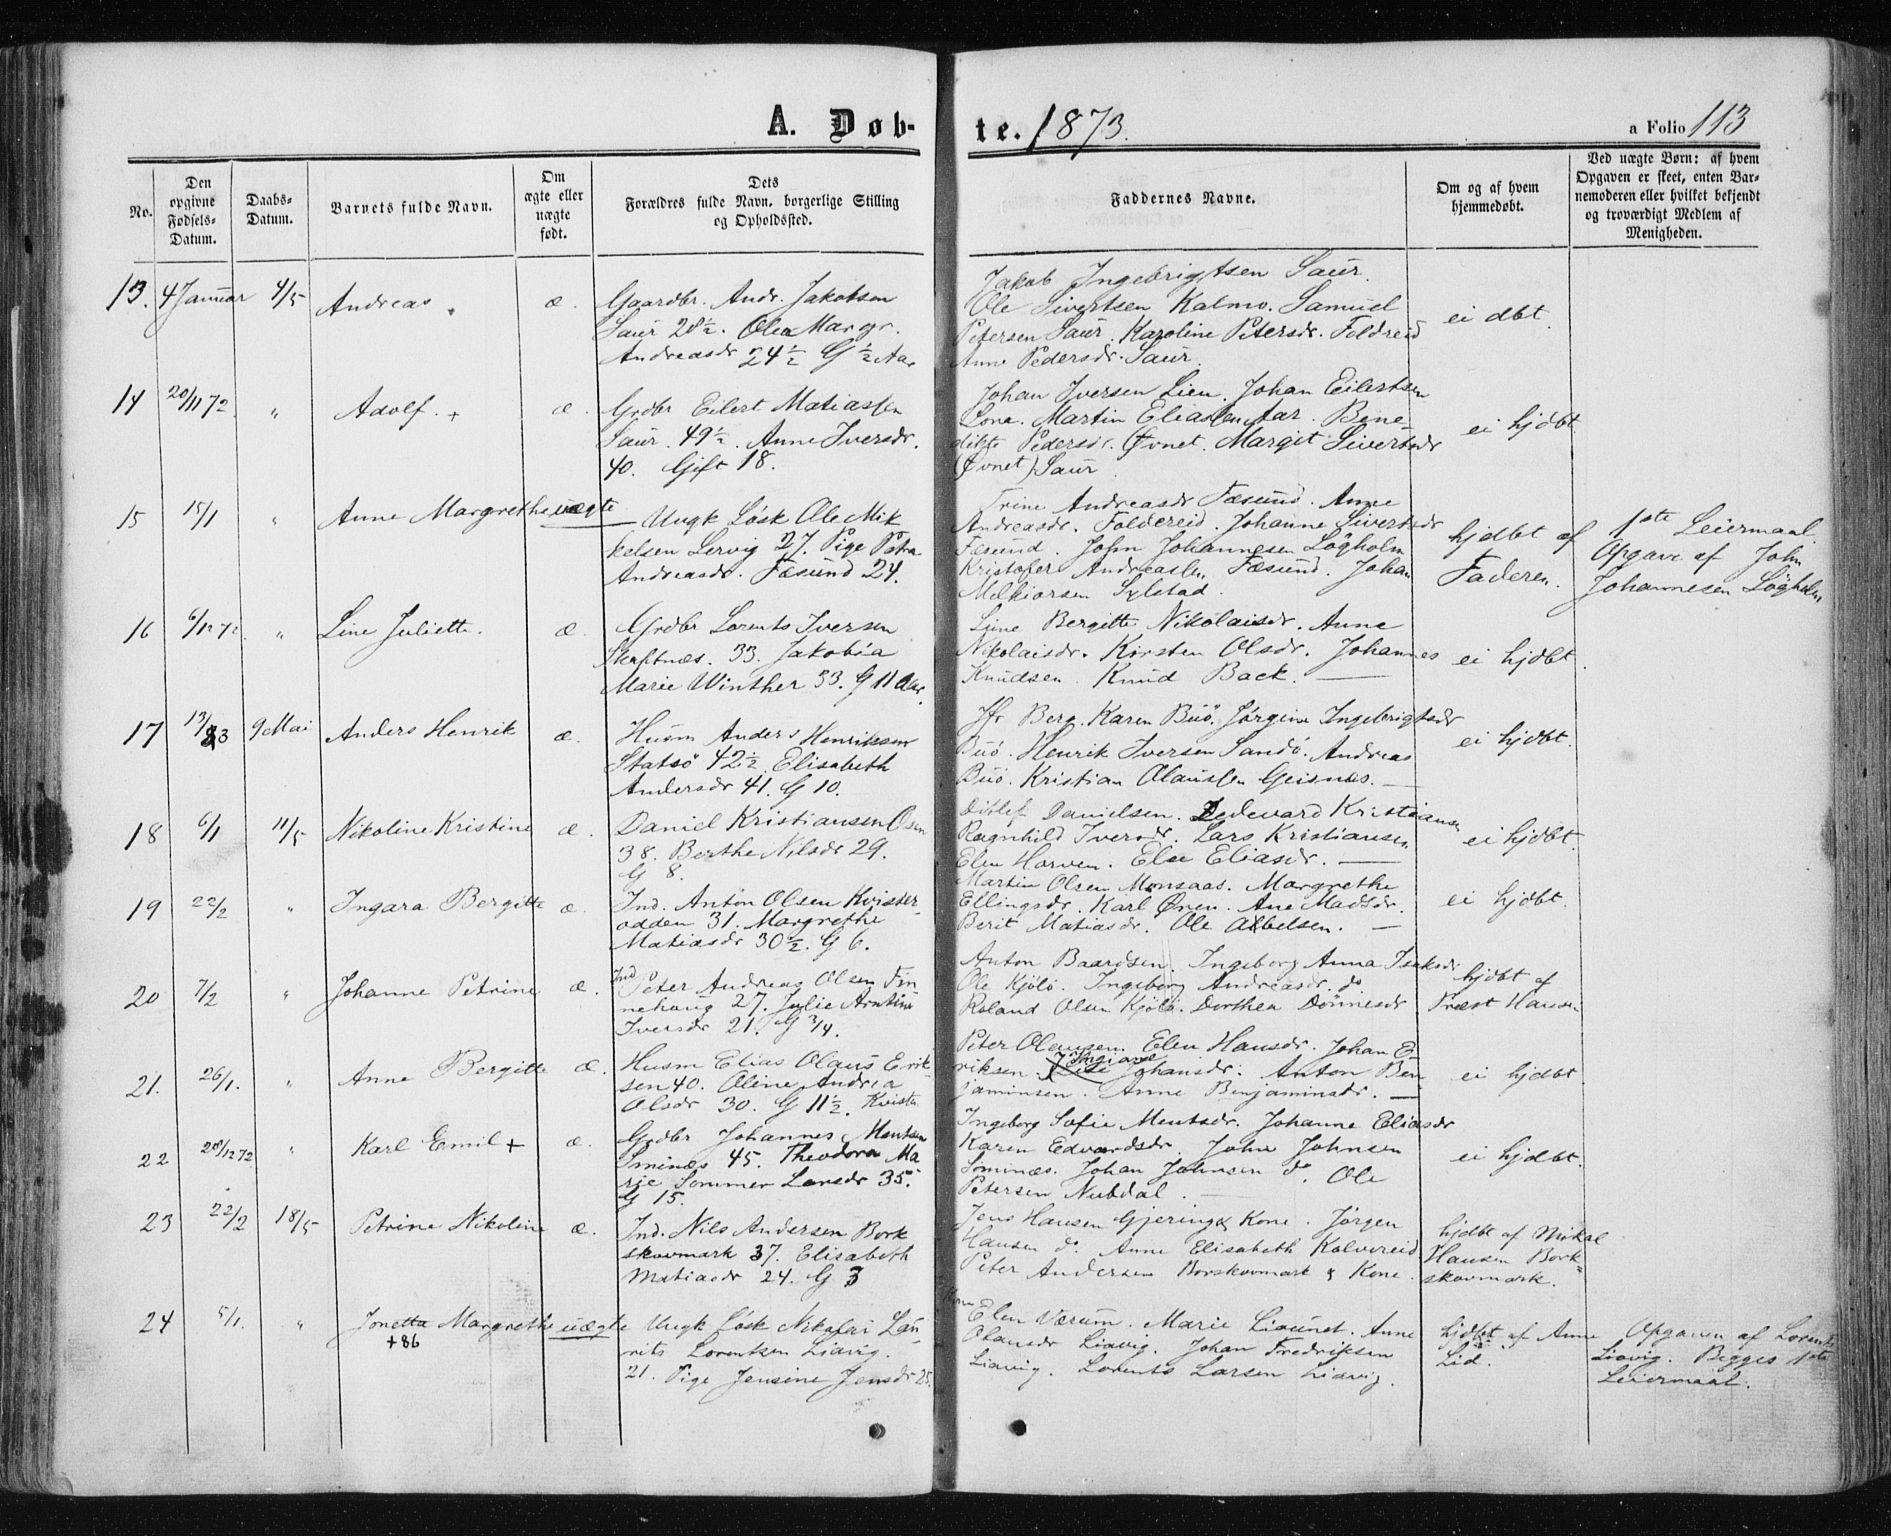 A. Døb-
te. 1873.
a Folio 113
No.
Den
opgivne
Fødsels-
Datum.
Daabs-
Datum.
Barnets fulde Navn.
Om
ægte eller
uægte
født.
Dets
Forældres fulde Navn, borgerlige Stilling
og Opholdssted.
Faddernes Navne.
Om og af hvem
hjemmedøbt.
Ved uægte Børn: af hvem
Opgaven er skeet, enten Bar-
nemoderen eller hvilket bekjendt
og troværdigt Medlem af
Menigheden.
13. 4 Januar 4/5 Andreas æ.
Gaardbr. Andr. Jakobsen
Saur 28½. Olea Margr.
Andreasdr 24½ G ½ Aar
Jakob Ingebrigtsen Saur.
Ole Sivertsen Kalmo. Samuel
Petersen Saur. Karoline Petersdr. Foldreid
Anne Pedersdr. Saur.
ei dbt.
14 20/11 72 " Adolf. + æ.
Grdbr Eilert Matiassen
Saur. 49½. Anne Iversdr.
40. Gift 18.
Johan Iversen Lien. Johan Eilertsen
Lona. Martin Eliassen Aar. Bene-
dikte Pedersdr. Øvnet. Margit Sivertsdr
(Øvnet) Saur
ei hjdbt
15 15/1 " Anne Margrethe uægte
Ungk Løsk Ole Mik
kelsen Lervig 27. Pige Petra
Andreasdr. Fæsund 24.
Trine Andreasdr Fæsund. Anne
Andreasdr. Foldereid. Johanne Sivertsdr
Fæsund. John Johannesen Løgholm
Kristofer Andreassen Fæsund. Johan
Melkiorsen Sylstad.
hjdbt af
Faderen.
1ste Leiermaal.
Opgave af John
Johannesen Løgholm
16 6/12 72. " Line Juliette. æ.
Grdbr Lorents Iversen
33. Jakobia
Marie Winther 33. G 11 Aar.
Line Bergitte Nikolaisdr. Anne
Nikolaisdr. Kirsten Olsdr. Johannes
Knudsen. Knud Back.
ei hjdbt.
17 13/3 9 Mai Anders Henrik æ.
Husm Anders Henriksen
Statsø 42½. Elisabeth
Andersdr 41. G 10.
Jfr Berg. Karen Buö. Jørgine Ingebrigtsdr
Buö. Henrik Iversen Sandö. Andreas
Buö. Kristian Olaussen Geisnes.
ei hjdbt.
18 6/1 11/5 Nikoline Kristine æ.
Daniel Kristiansen Osen
38. Berthe Nilsdr 29.
G 8.
Ditlef Danielsen. Kristiansen
Ragnhild Iversdr. Lars Kristiansen
Elen Horven. Else Eliasdr.
ei hjdbt.
19 22/2 " Ingara Bergitte æ.
Ind. Anton Olsen Kvister-
odden 31. Margrethe
Matiasdr 30½. G 6.
Martin Olsen Monsaas. Margrethe
Ellingsdr. Karl Ønen. Ane Madsdr.
Berit Matiasdr. Ole Abelsen.
ei hjdbt.
20 7/2 " Johanne Petrine æ.
Ind Peter Andreas Olsen Fin
nehaug 27. Julie Arntine
Iversdr 21. G 3/4.
Anton Baardsen. Ingeborg Anna Isaksdr
Ole Kjölö. Ingeborg Andreasdr. do
Roland Olsen Kjölö. Dorthea Dönnesdr
hjdbt af
Præst Hansen
21. 26/1. " Anne Bergitte æ.
Husm Elias Olaus Erik
sen 40. Oline Andrea
Olsdr 30. G 11½. Kvister
Peter Olaussen. Elen Hansdr. Johan E-
riksen. Ingiane Johansdr. Anton Ben
jaminsen. Anne Benjaminsdr.
ei hjdbt
22 28/12 72 " Karl Emil + æ.
Grdbr Johannes Mentsen
Sminæs 45. Theodora Ma
rie Sommer Larsdr 35.
G 15.
Ingeborg Sofie Mentsdr. Johanne Eliasdr
Karen Edvardsdr. John Johnsen
Sominæs. Johan Johnsen do. Ole
Petersen Nubdal.
ei hjdbt.
23 22/2 18/5 Petrine Nikoline æ.
Ind. Nils Andersen Bork
skovmark 37. Elisabeth
Matiasdr 24. G 3
Jens Hansen Gjering & Kone. Jørgen
Hansen do. Anne Elisabeth Kalvereid
Peter Andersen Borskovmark & Kone.
hjdbt af Mikal
Hansen Bork-
skovmark.
24 5/1. " Jonetta Margrethe uægte
+86
Ungk Løsk Nikolai Lau
rits Lorentsen Liavig.
21. Pige Jensine Jensdr 25.
Elen Værum. Marie Liaunet. Anne
Olausdr Liavig. Johan Fredriksen
Liavig. Lorents Larsen Liavig.
hjdbt af Anne
Lid.
Opgaven af Lorents
Liavig. Begges 1ste
Leiermaal.